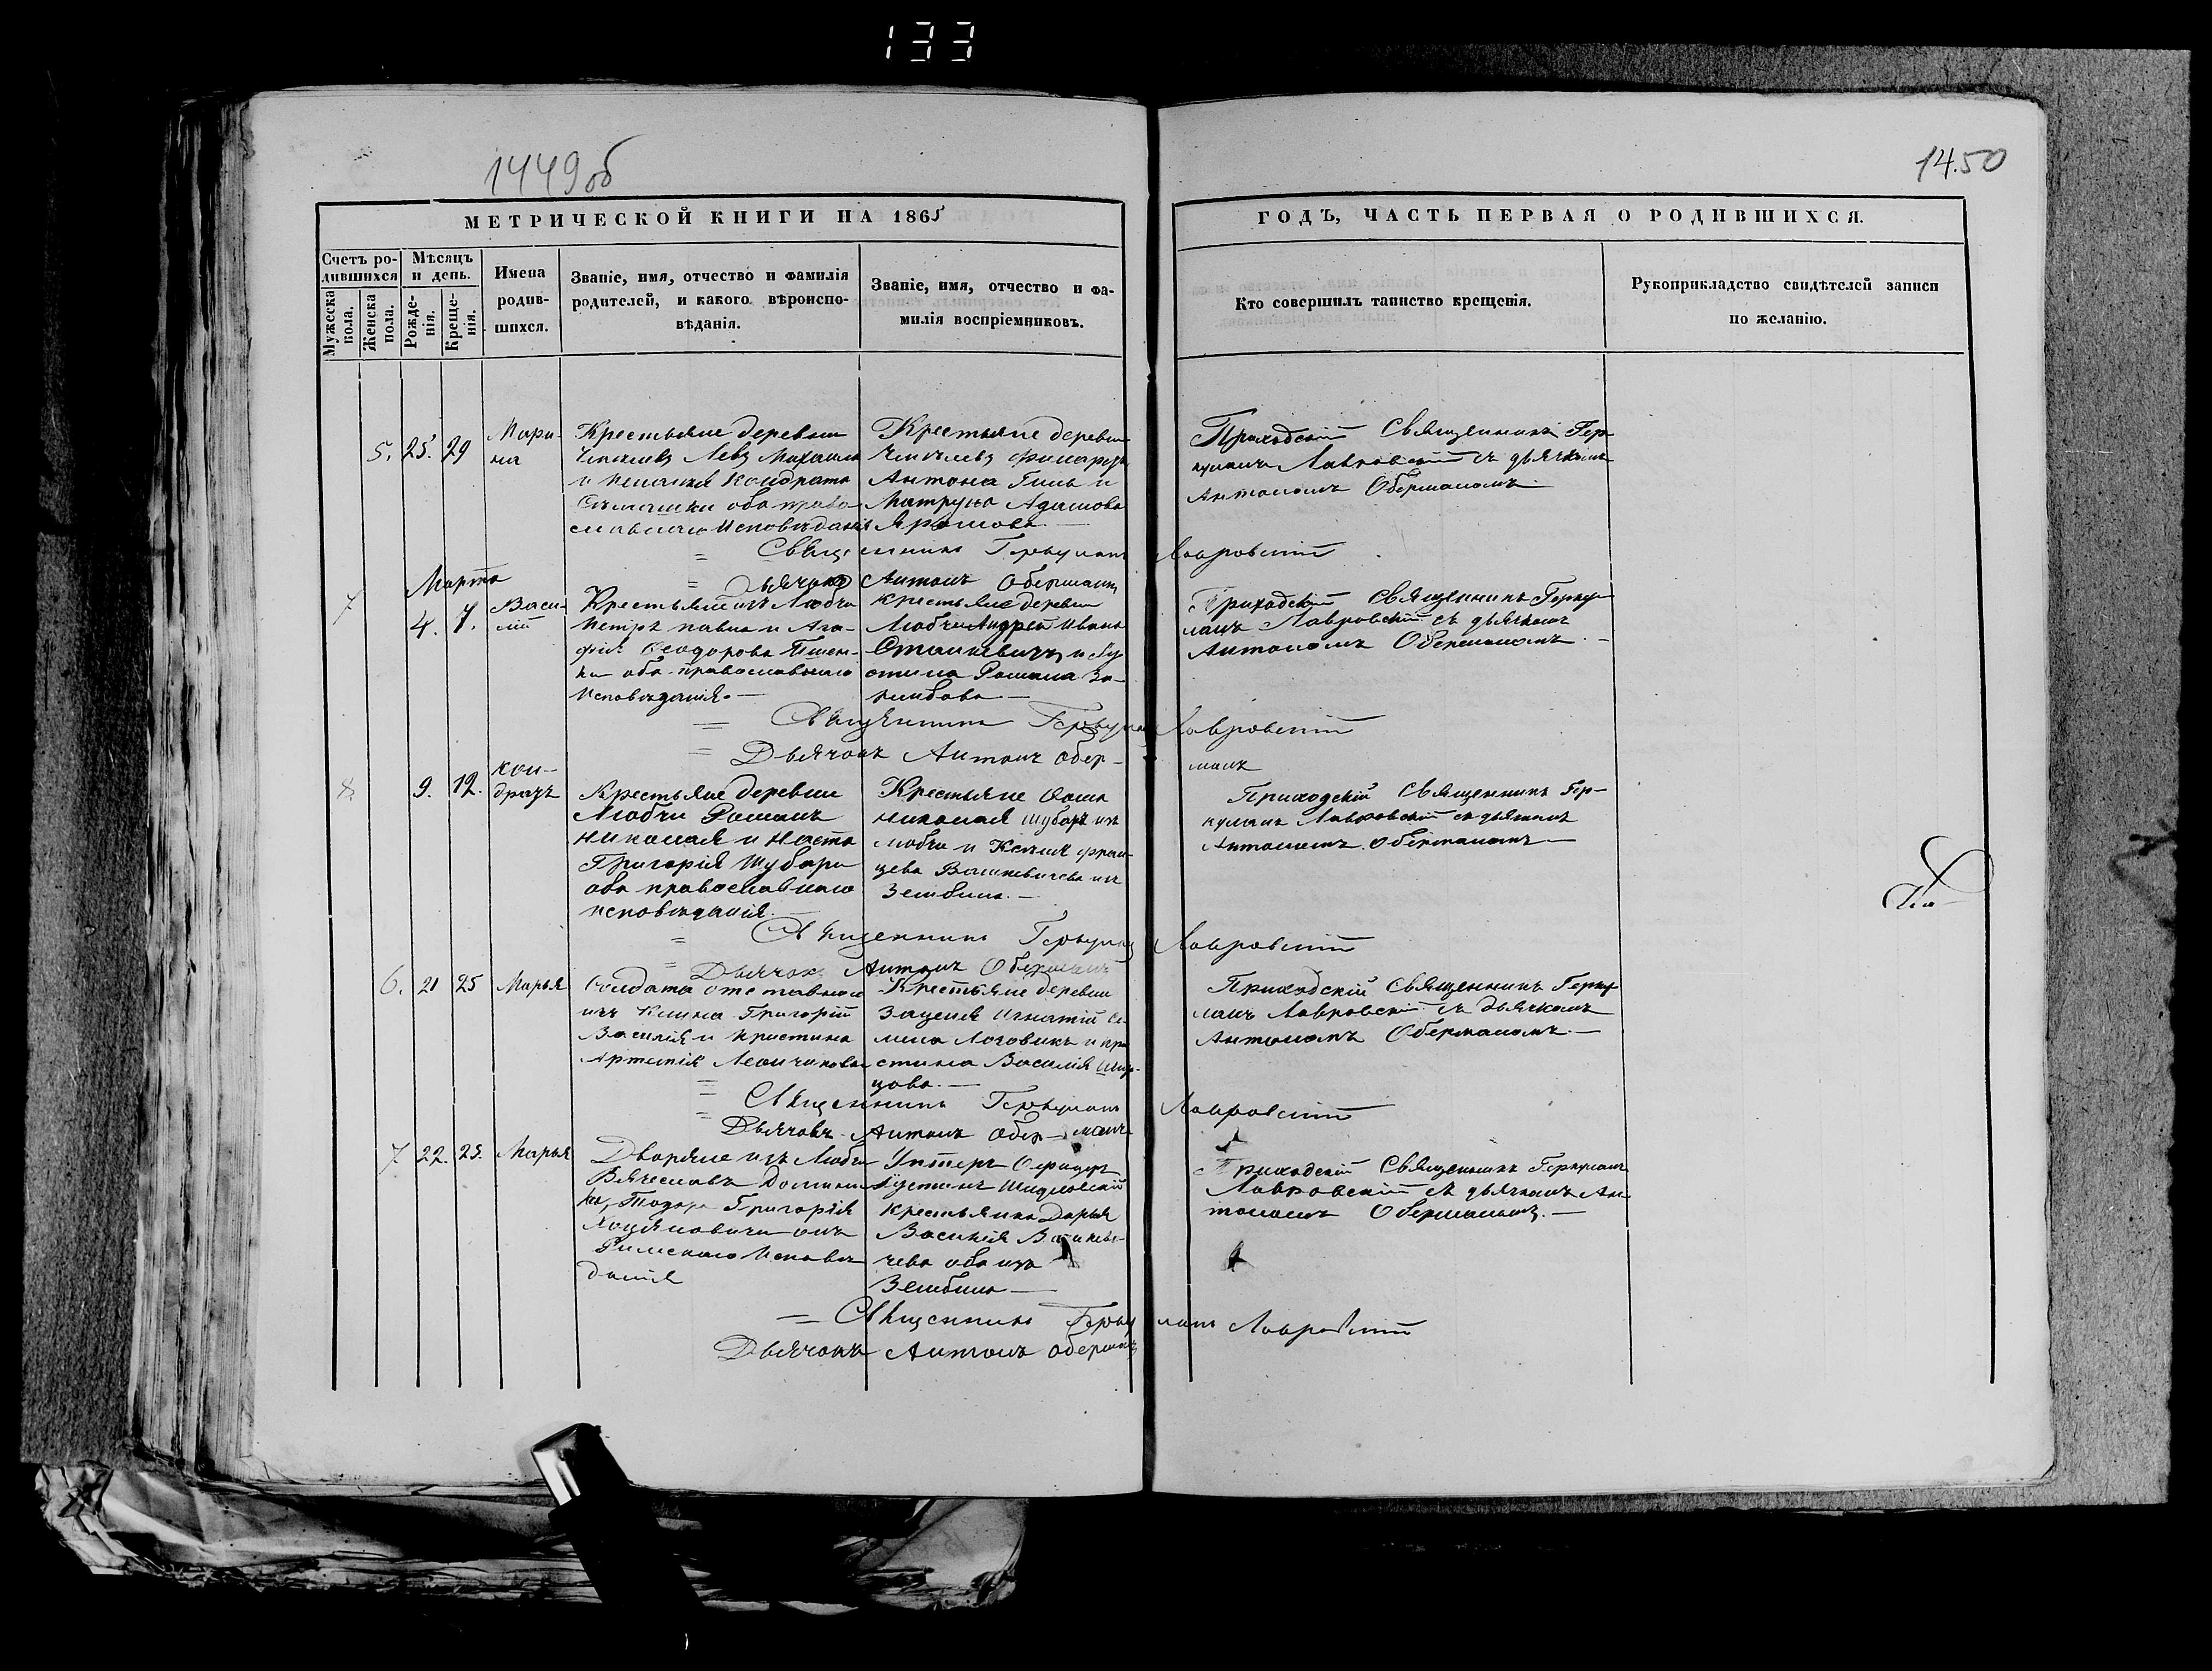 133
1449об
14.50
МЕТРИЧЕСКОЙ КНИГИ НА 1865
ГОДЪ, ЧАСТЬ ПЕРВАЯ О РОДИВШИХСЯ.
Счетъ ро-
дившихся
Мужеска
пола.
Женска
пола.
Мѣсяцъ
и день.
Рожде-
нія.
Креще-
нія.
Имена
родив-
шихся.
Званіе, имя, отчество и фамилія
родителей, и какого вѣроиспо-
вѣданія.
Званіе, имя, отчество и фа-
милія воспріемниковъ.
Кто совершилъ таинство крещенія.
Рукоприкладство свидѣтелей записи
по желанію.
5. 25. 29
Мари-
на
Крестьяне деревни
Левъ Михаила
и Кондрата
оба право-
славнаго Исповѣданія
Крестьяне деревни
Антона и
Матруна Адамова
Приходскій Священникъ Гер-
куланъ Лавровскій съ дьячкомъ
Антономъ Оберманомъ
Священникъ Геркуланъ Лавровскій
Дьячокъ Антонъ Оберманъ
Марта
7 4. 7.
Васи-
лій
Крестьяне изъ Любчи
Петръ Павла и Ага-
фія Ѳеодорова
оба православнаго
Исповѣданія.
Крестьяне деревни
Любчи Андрей Ивана
Станкевичъ и Ју-
стина Романа
Приходскій Священникъ Герку-
ланъ Лавровскій съ дьячкомъ
Антономъ Оберманомъ
Священникъ Геркуланъ Лавровскій
Дьячокъ Антонъ Обер-
манъ
8. 9. 12.
Кон-
дратъ
Крестьяне деревни
Любчи Романъ
Николая и Наста
Григорія Шубары
оба православнаго
исповѣданія.
Крестьяне Ѳома
Николая Шубаръ изъ
Любчи и Фран-
цева изъ
Зембина.
Приходскій Священникъ Гер-
куланъ Лавровскій съ дьячкомъ
Антономъ Оберманомъ
Священникъ Геркуланъ Лавровскій
Дьячокъ Антонъ Оберманъ
6. 21 25 Марья
Солдата отставнаго
изъ Григорій
Василія и Кристина
Артемія
Крестьяне деревни
Игнатій Се-
мена и Кри-
стина Василія
цова.
Приходскій Священникъ Герку-
ланъ Лавровскій съ дьячкомъ
Антономъ Оберманомъ.
Священникъ Геркуланъ Лавровскій
Дьячокъ Антонъ Оберманъ
7 22. 25. Марья
Дворяне изъ Любчи
Вячеславъ Домини-
ка, Григорія
Римскаго Исповѣ-
данія
Унтеръ Офицеръ
Крестьянка Дарья
Василія
чева оба изъ
Зембина
Приходскій Священникъ Геркуланъ
Лавровскій съ дьячкомъ Ан-
тономъ Оберманомъ.
Священникъ Геркуланъ Лавровскій
Дьячокъ Антонъ Оберманъ